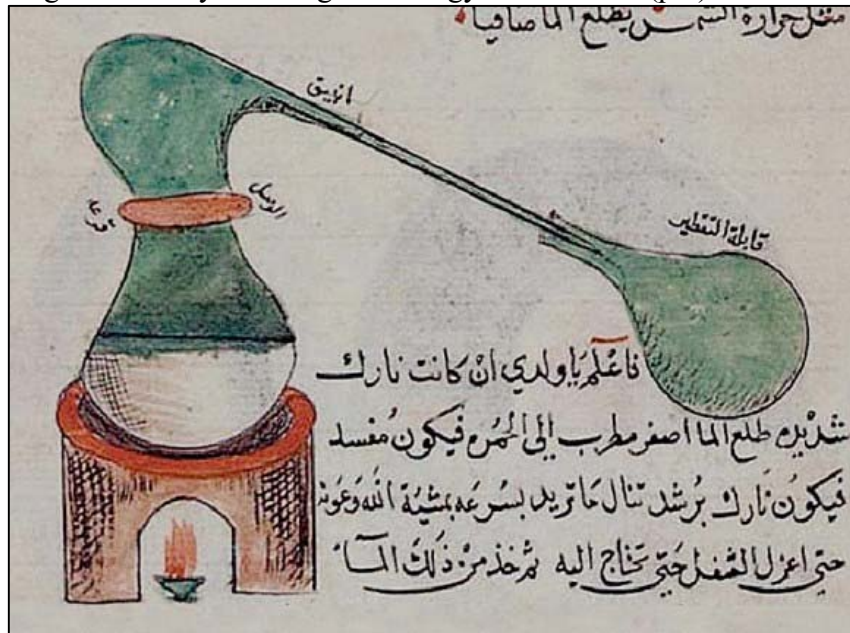 مثل حرارة الشمس يطلع الما صافيا
انبيق
الوصل
قابلة التقطير
فاعلم يا ولدي ان كانت نارك
شديده طلع الما اصفر مطرب الى الحمره فيكون مفسد
فيكون نارك برشد تنال ما تريد بسرعه بمشيّة الله وعونه
حتى اعزل الثفل حتى تحتاج اليه ثم خذ من ذلك المآء